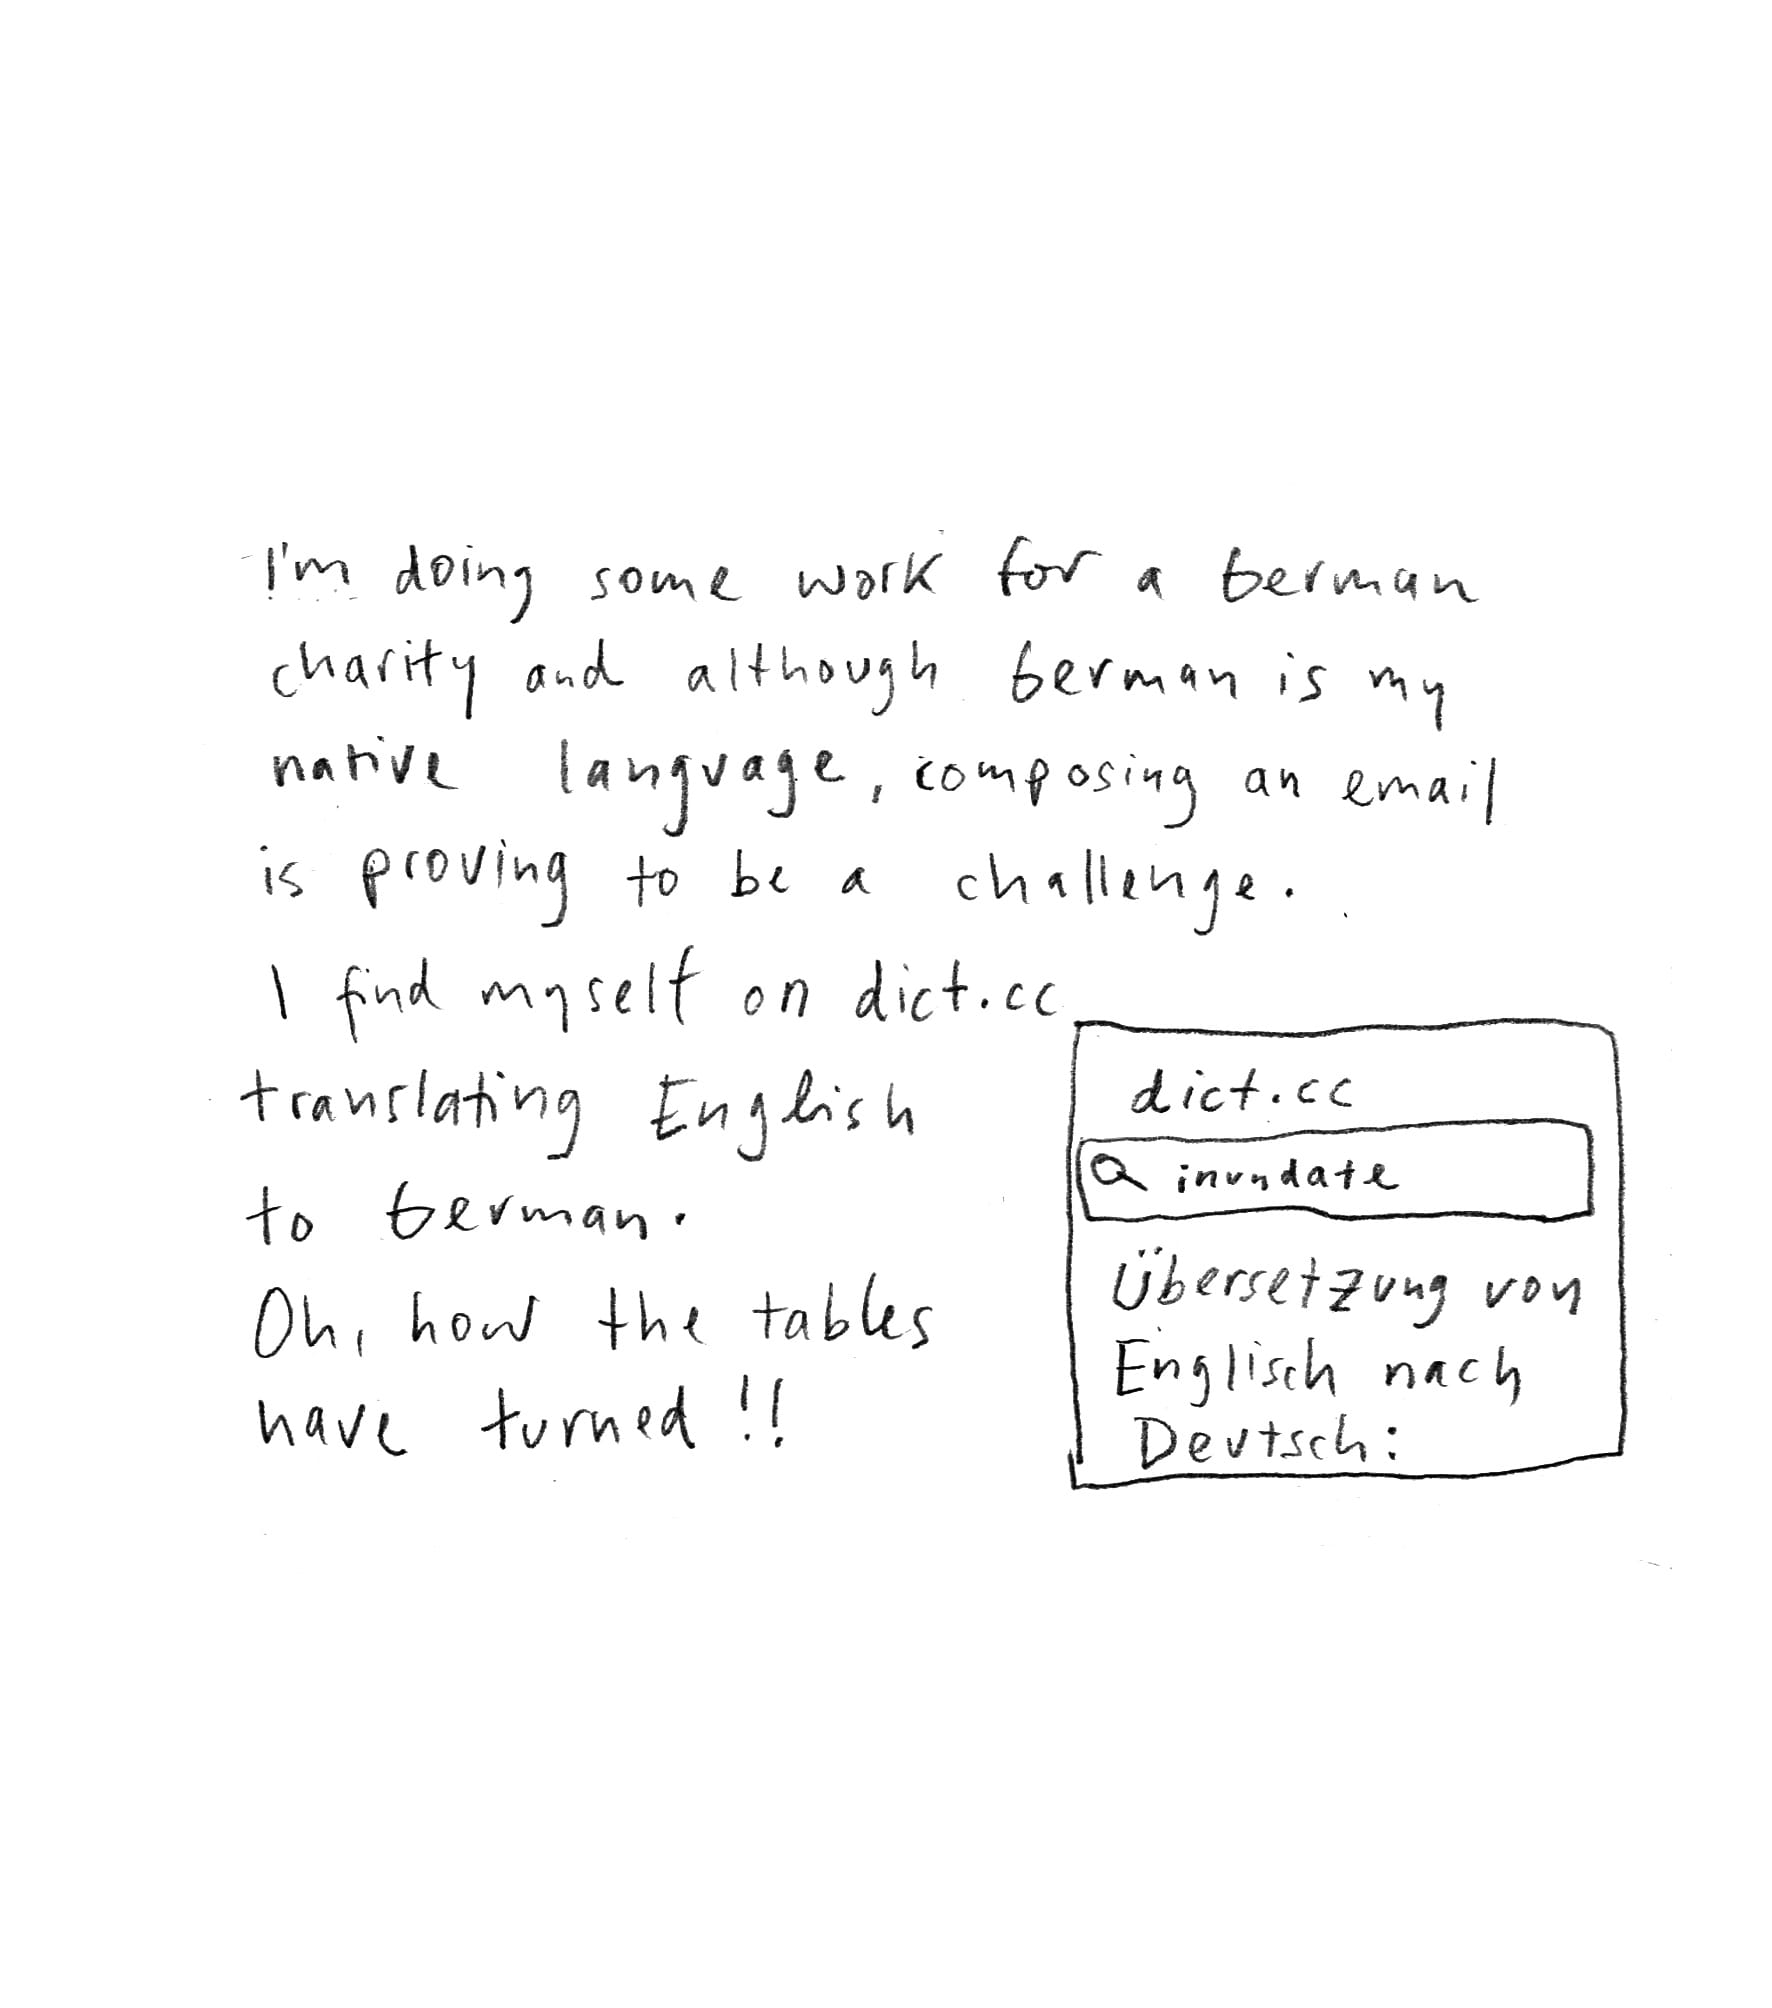 I'm doing some work for a German
charity and although German is my
native language, composing an email
is proving to be a challenge.
I find myself on dict.cc
translating English
to German.
Oh, how the tables
have turned!!
dict.cc
inundate
Übersetzung von
Englisch nach
Deutsch: